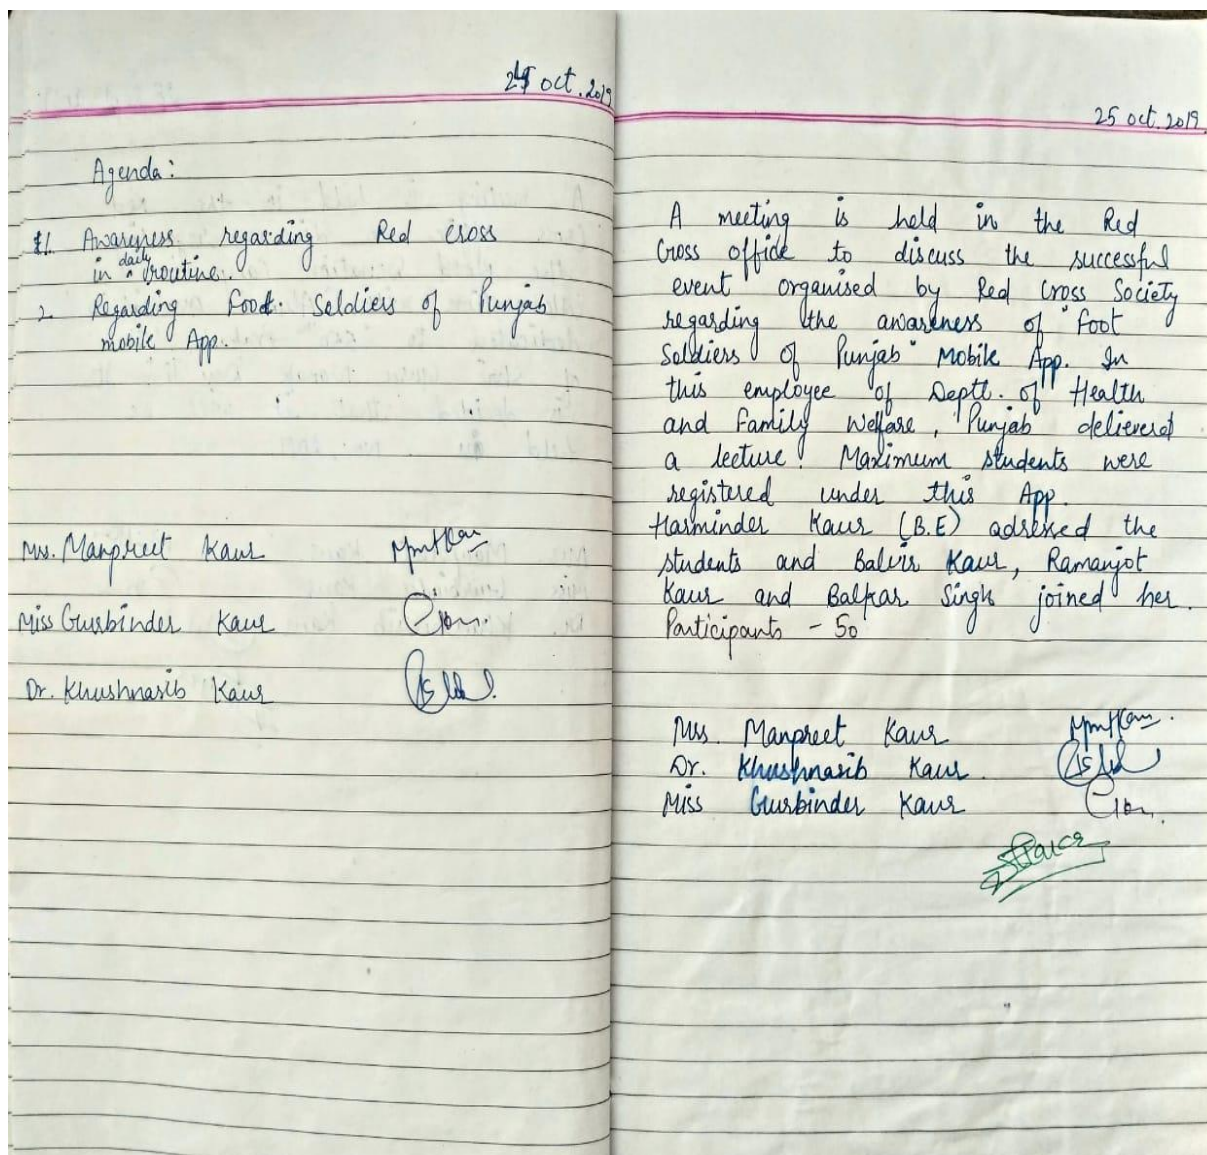 24 oct. 2019
Agenda:
1. Awareness regarding Red Cross
in daily routine.
2. Regarding Foot Soldiers of Punjab
mobile App.
Mrs. Manpreet Kaur
Miss Gurbinder Kaur
Dr. Khushnasib Kaur
25 oct. 2019
A meeting is held in the Red
Cross office to discuss the successful
event organised by Red Cross Society
regarding the awareness of "Foot
Soldiers of Punjab" Mobile App. In
this employee of Deptt. of Health
and Family Welfare, Punjab delievered
a lecture. Maximum students were
registered under this App.
Harminder Kaur (B.E) adressed the
students and Balvir Kaur, Ramanjot
Kaur and Balkar Singh joined her.
Participants - 50
Mrs. Manpreet Kaur
Dr. Khushnasib Kaur
Miss Gurbinder Kaur